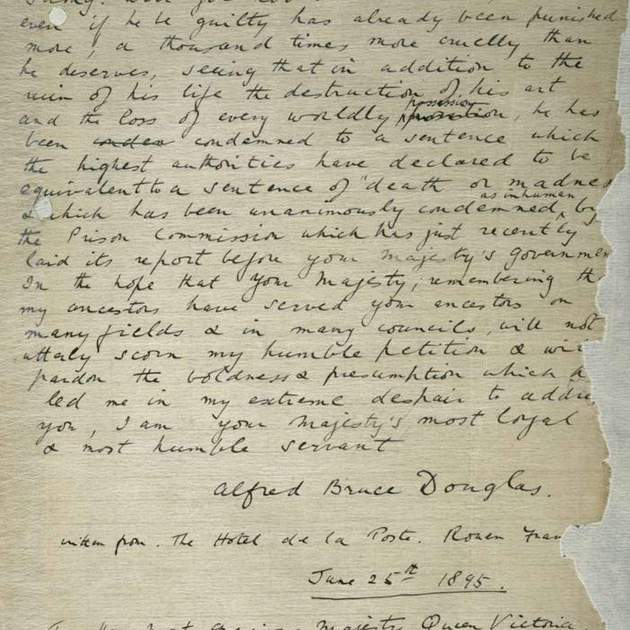 even if he be guilty has already been punished
more, a thousand times more cruelly than
he deserves, seeing that in addition to the
ruin of his life the destruction of his art
and the loss of every worldly possession, he has
been condemned to a sentence which
the highest authorities have declared to be
equivalent to a sentence of "death or madnes
& which has been unanimously condemned as inhuman by
the Prison Commission which has just recently
laid its report before your Majesty's governmen
In the hope that your Majesty, remembering th
my ancestors have served your ancestors on
many fields & in many councils, will not
utterly scorn my humble petition & wi
pardon the boldness & presumption which
led me in my extreme despair to addre
you, I am your Majesty's most loyal
& most humble servant
Alfred Bruce Douglas.
written from. The Hotel de la Poste. Rouen Fran
June 25th 1895.
Majesty Queen Victoria